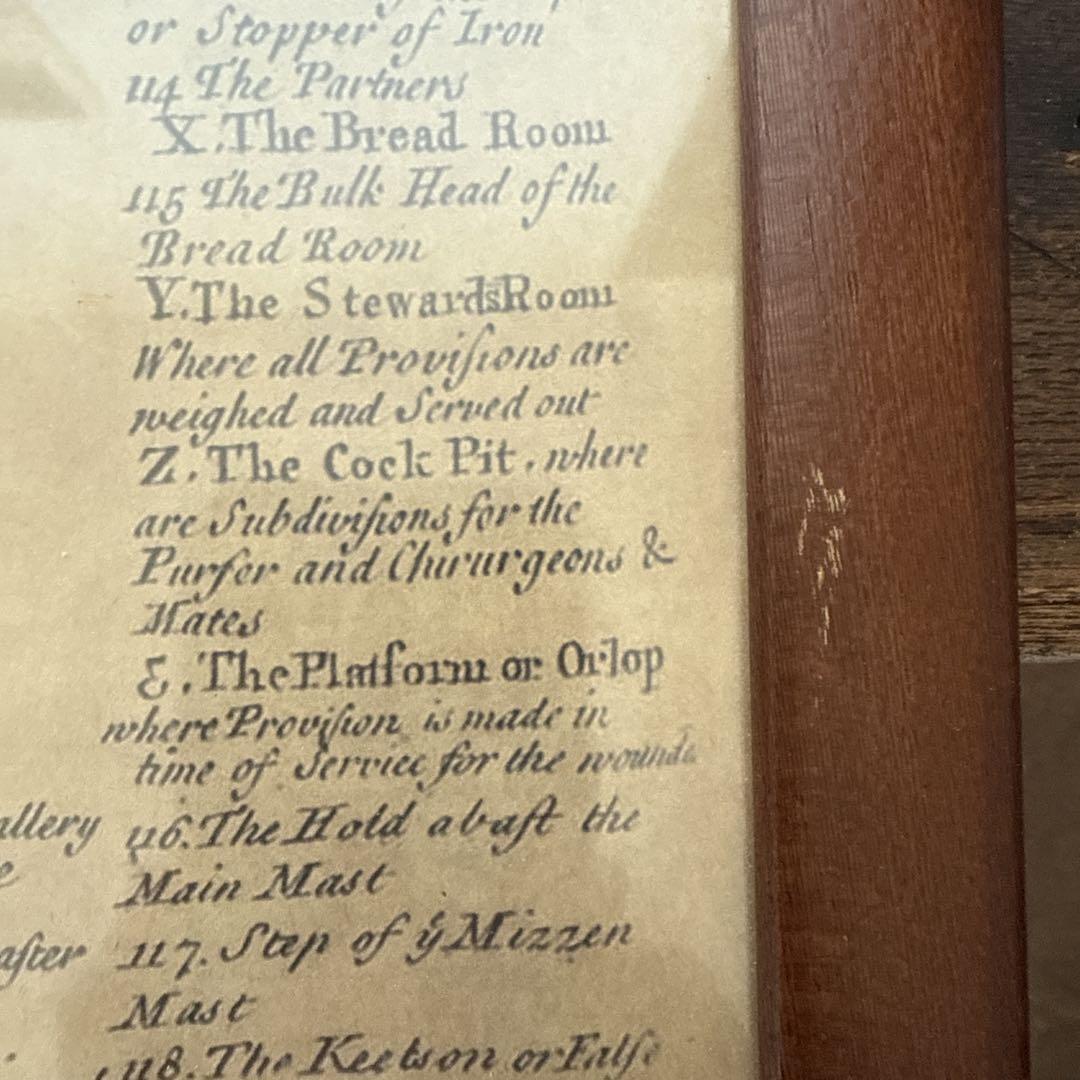 or Stopper of Iron
114 The Partners
X. The Bread Room
115 The Bulk Head of the
Bread Room
Y. The Stewards Room
Where all Proviſions are
weighed and Served out
Z. The Cock Pit, where
are Subdiviſions for the
Purſer and Chirurgeons &
Mates
&. The Platform or Orlop
where Proviſion is made in
time of Service for the
allery
116. The Hold abaft the
e
Main Mast
aſter
117. Step of ẏ Mizzen
Mast
118. The Keelson or Falſe